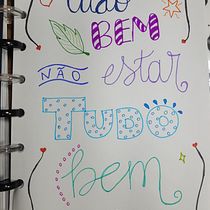 tudo
BEM
NÃO estar
TUDO
bem